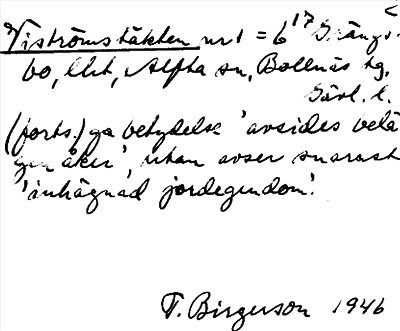 c
Viströmstäkten nr 1 = 6 17 Grängs-
bo, lht, Alfta sn, Bollnäs tg,
Gävl. l.
(forts.) ga betydelse 'avsides belä
gen åker', utan avser snarast
'inhägnad jordegendom'.
T. Birgerson 1946